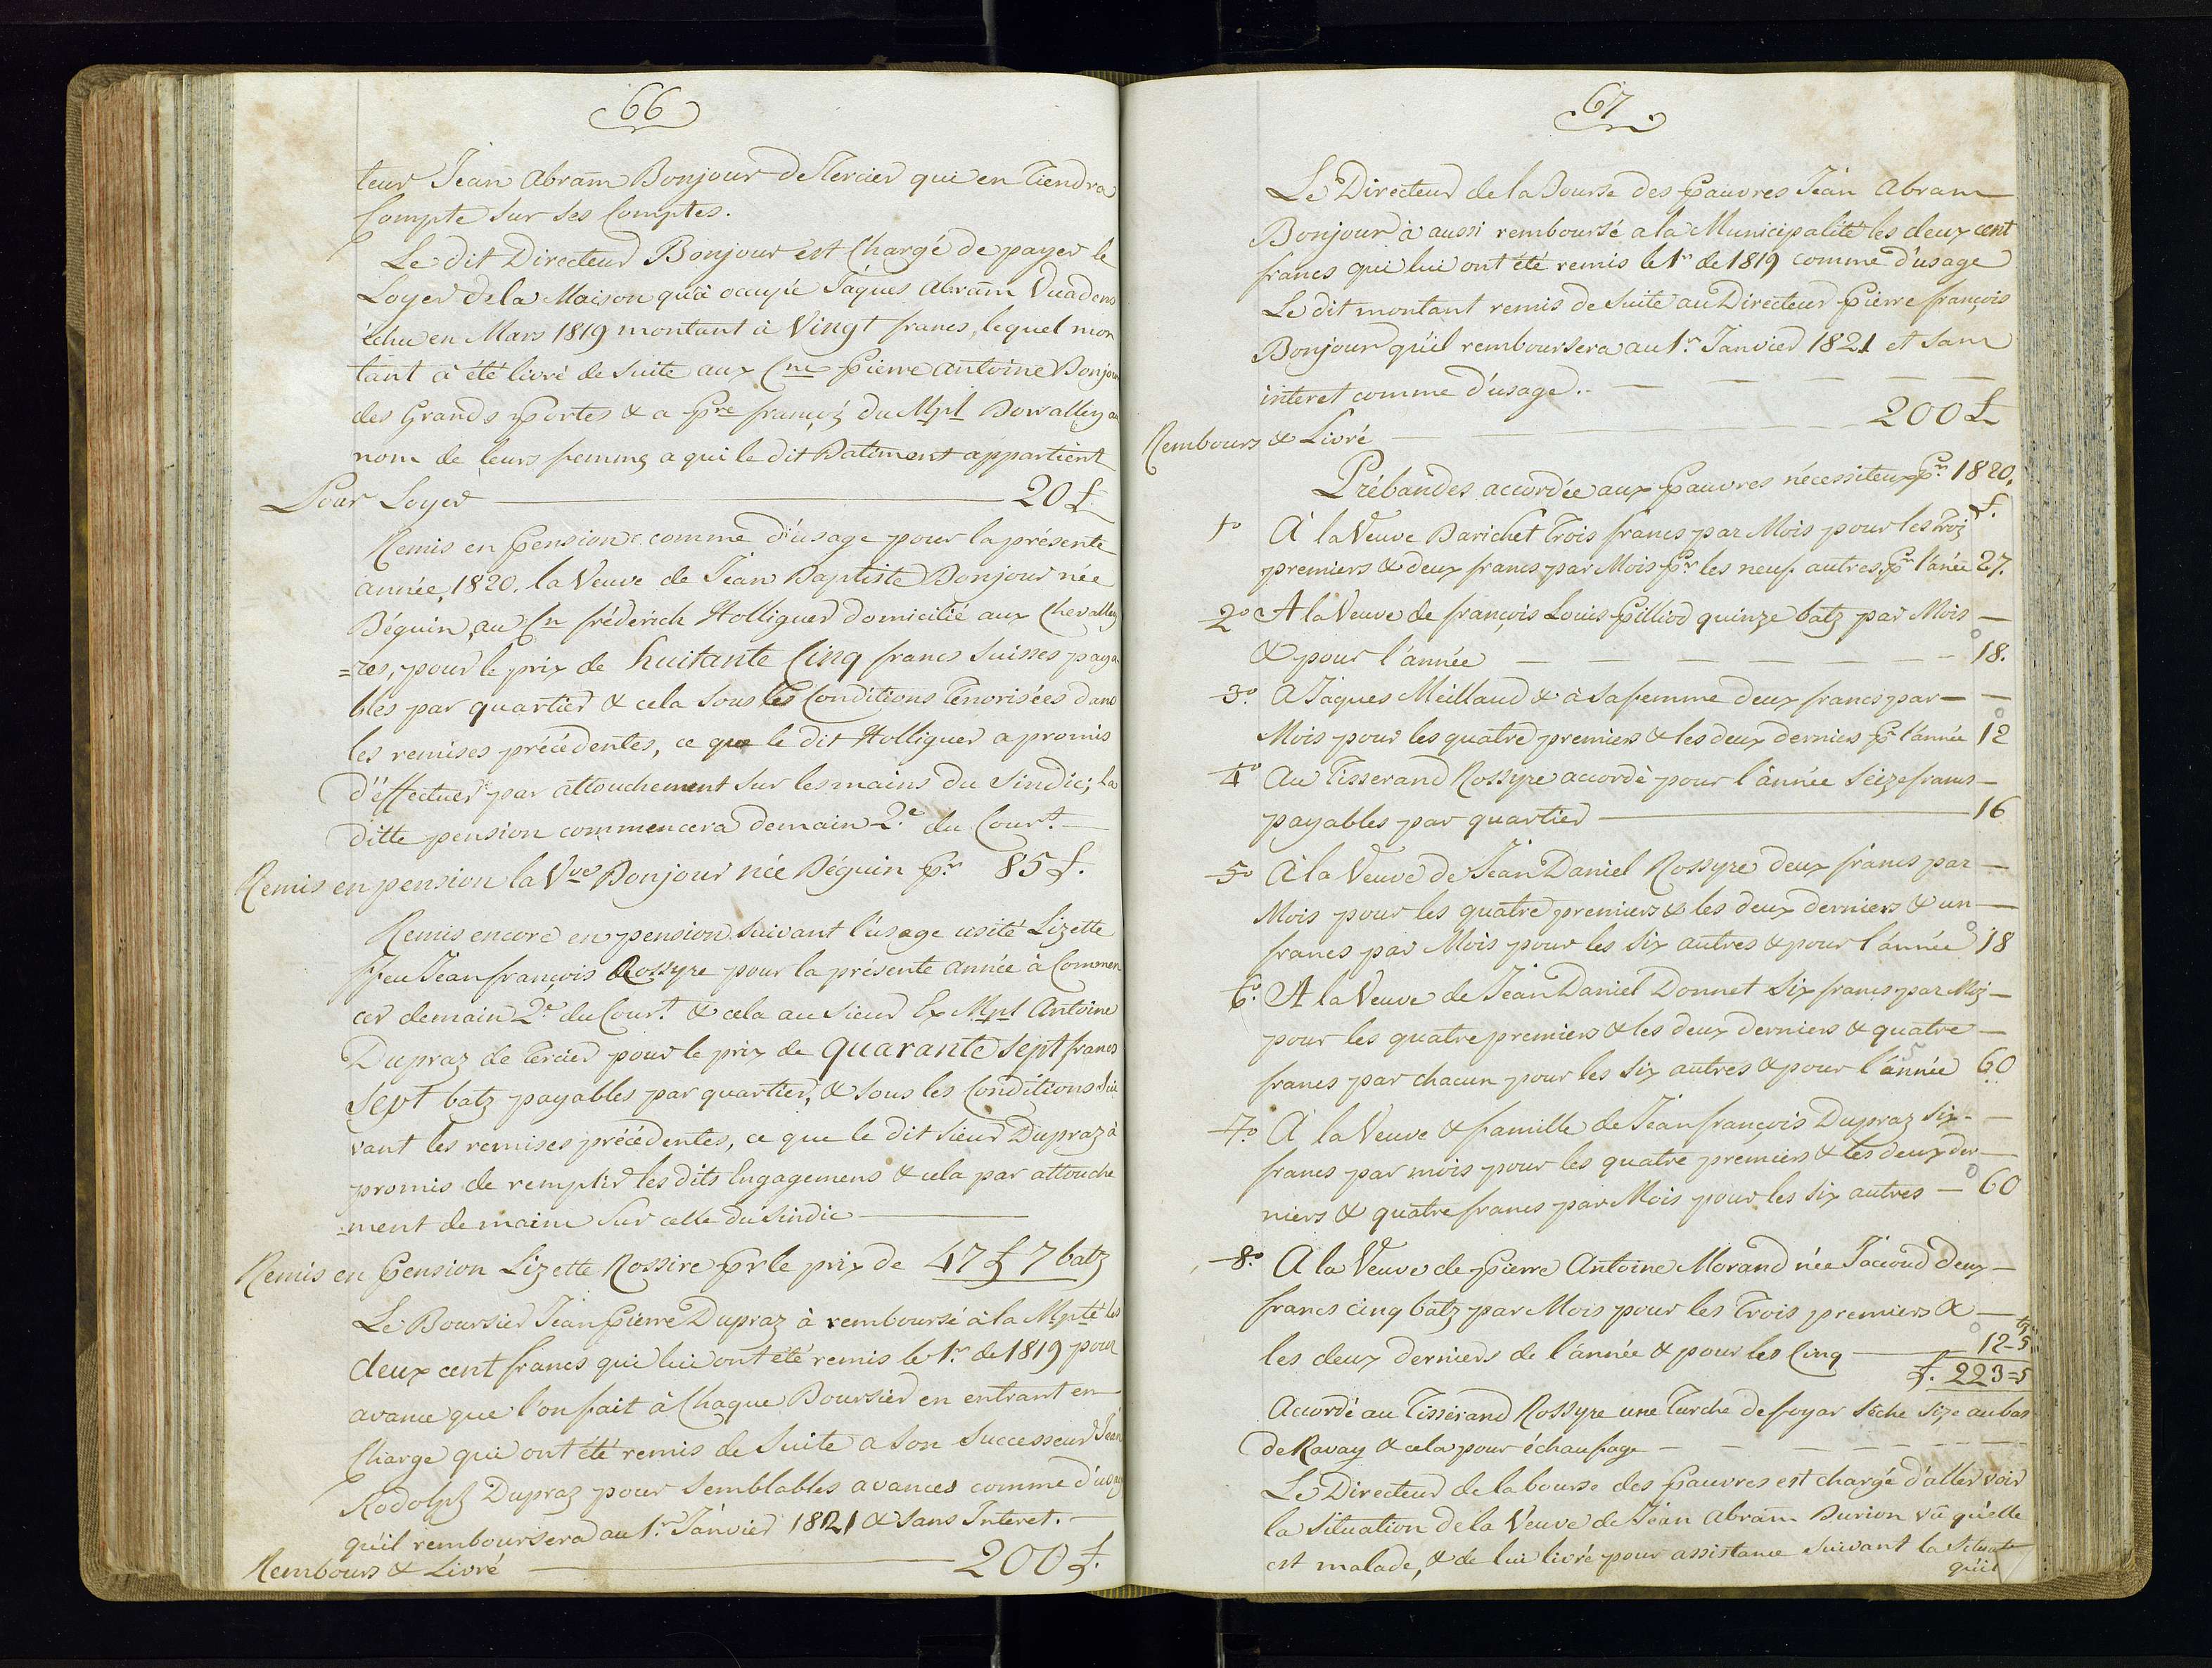 66
teur Jean Abram Bonjour de Tercier qui en tiendra
Compte sur ses Comptes.
Le dit Directeur Bonjour est Chargé de payer le
Loyer de la Maison qu'à occupé Jâques Abram Vuadens
échu en Mars 1819 montant à Vingt francs, lequel mon
tant à été livré de suite aux Cne Pierre Antoine Bonjour
des Grands Portes & a Pre françs du Mpl Dowalley au
nom de leurs femmes a qui le dit Batiment appartient
Pour Loyer 20 £
Remis en Pension comme d'usage pour la présente
année, 1820. la Veuve de Jean Baptiste Bonjour née
Béguin, au Cn fréderich Holliguer domicilié aux Chevalley
=res, pour le prix de huitante Cinq francs Suisses paya
bles par quartier & cela sous les Conditions Tenorisées dans
les remises précédentes, ce que le dit Holliguer a promis
d'éffectuer par attouchement sur les mains du Sindic; la
ditte pension commencera demain 2e. du Court.
Remis en pension la Vve Bonjour née Béguin pr. 85 £.
Remis encore en pension suivant l'usage usité Lizette
ffeu Jean françois Rossyre pour la présente année à Commen
cer demain 2e du Court. & cela au Sieur Ex Mpl Antoine
Dupraz de Tercier pour le prix de quarante sept francs
sept batz payables par quartier, & sous les Conditions sui
vant les remises précédentes, ce que le dit Sieur Dupraz à
promis de remplir les dits Engagemens & cela par attouche
=ment de main sur celle du Sindic
Remis en Pension Lizette Rossire pr le prix de 47 £ 7 batz
Le Boursier Jean Pierre Dupraz à remboursé à la Mpté les
deux cent francs qui lui ont été remis le 1r. de 1819 pour
avance que l'on fait à Chaque Boursier en entrant en
Charge qui ont été remis de suite a son Successeur Jean
Rodolph Dupraz pour semblables avances comme d'usage
qu'il remboursera au 1r. Janvier 1821 & sans Interet.
Rembours & Livré 200 £.
67
Le Directeur de la Bourse des Pauvres Jean Abram
Bonjour à aussi remboursé a la Municipalité les deux cent
francs qui lui ont été remis le 1r de 1819 comme d'usage
Le dit montant remis de suite au Directeur Pierre françois
Bonjour qu'il remboursera au 1r. Janvier 1821 et sans
interet comme d'usage.
200 £
Rembours & Livré
Prébandes accordée aux Pauvres nécessiteux Pr. 1820.
£.
1o A la Veuve Barichet Trois francs par Mois pour les Troiz
premiers & deux francs par Mois Pr les neuf autres, Pr l'anée 27.
2o A la Veuve de françois Louis Pilliod quinze batz par Mois
& pour l'année 18.
3o. A Jâques Meillaud & à sa femme deux francs par
Mois pour les quatre premiers & les deux derniers Pr l'année 12
4o Au Tisserand Rossyre accordé pour l'année Seize francs
payables par quartier 16
5o A la Veuve de Jean Daniel Rossyre deux francs par
Mois pour les quatre premiers & les deux derniers & un
francs par Mois pour les six autres & pour l'année 18
6o. A la Veuve de Jean Daniel Donnet Six francs par Moiz
pour les quatre premiers & les deux derniers & quatre
francs par chacun pour les six autres & pour l'année 60
7o A la Veuve & famille de Jean françois Dupraz six
francs par mois pour les quatre premiers & les deux der
niers & quatre francs par Mois pour les six autres 60
8o. A la Veuve de Pierre Antoine Morand née Jaccoud deux
francs cinq batz par Mois pour les Trois premiers &
les deux derniers de l'année & pour les Cinq 12-5
£. 223=5
Accordé au Tisserand Rossyre une Turche de foyar séche size au bas
de Ravay & cela pour échaufage
Le Directeur de la bourse des Pauvres est chargé d'aller voir
la Situation de la Veuve de Jean Abram Burion vû qu'elle
est malade, & de lui livré pour assistance suivant la Situat
qu'il